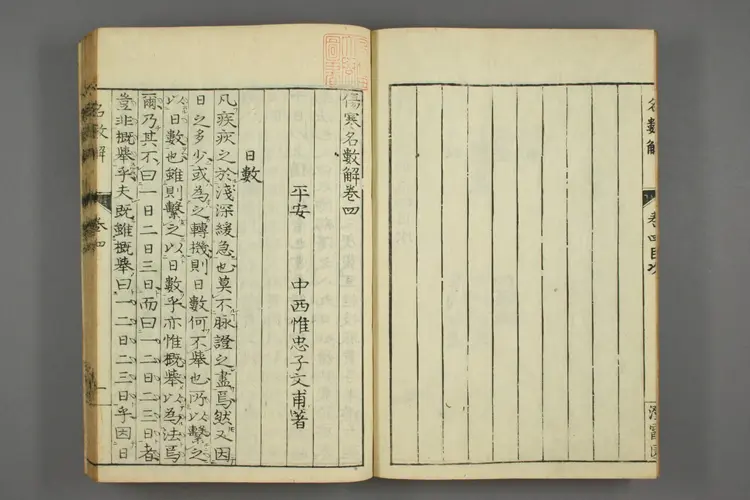 名數解
卷四目次
傷寒名數解卷四
平安 中西惟忠子文甫著
日數
凡疾疢之於淺深緩急也莫不脉證之盡焉然又因
日之多少或爲之轉機則日數何不舉也所以繫之
以日數也雖則繫之以日數乎亦惟概舉以爲法焉
爾乃其不曰一日二日三日而曰一二日二三日者
豈非概舉乎夫既雖概舉曰一二日二三日乎因日
名數解
卷四
一